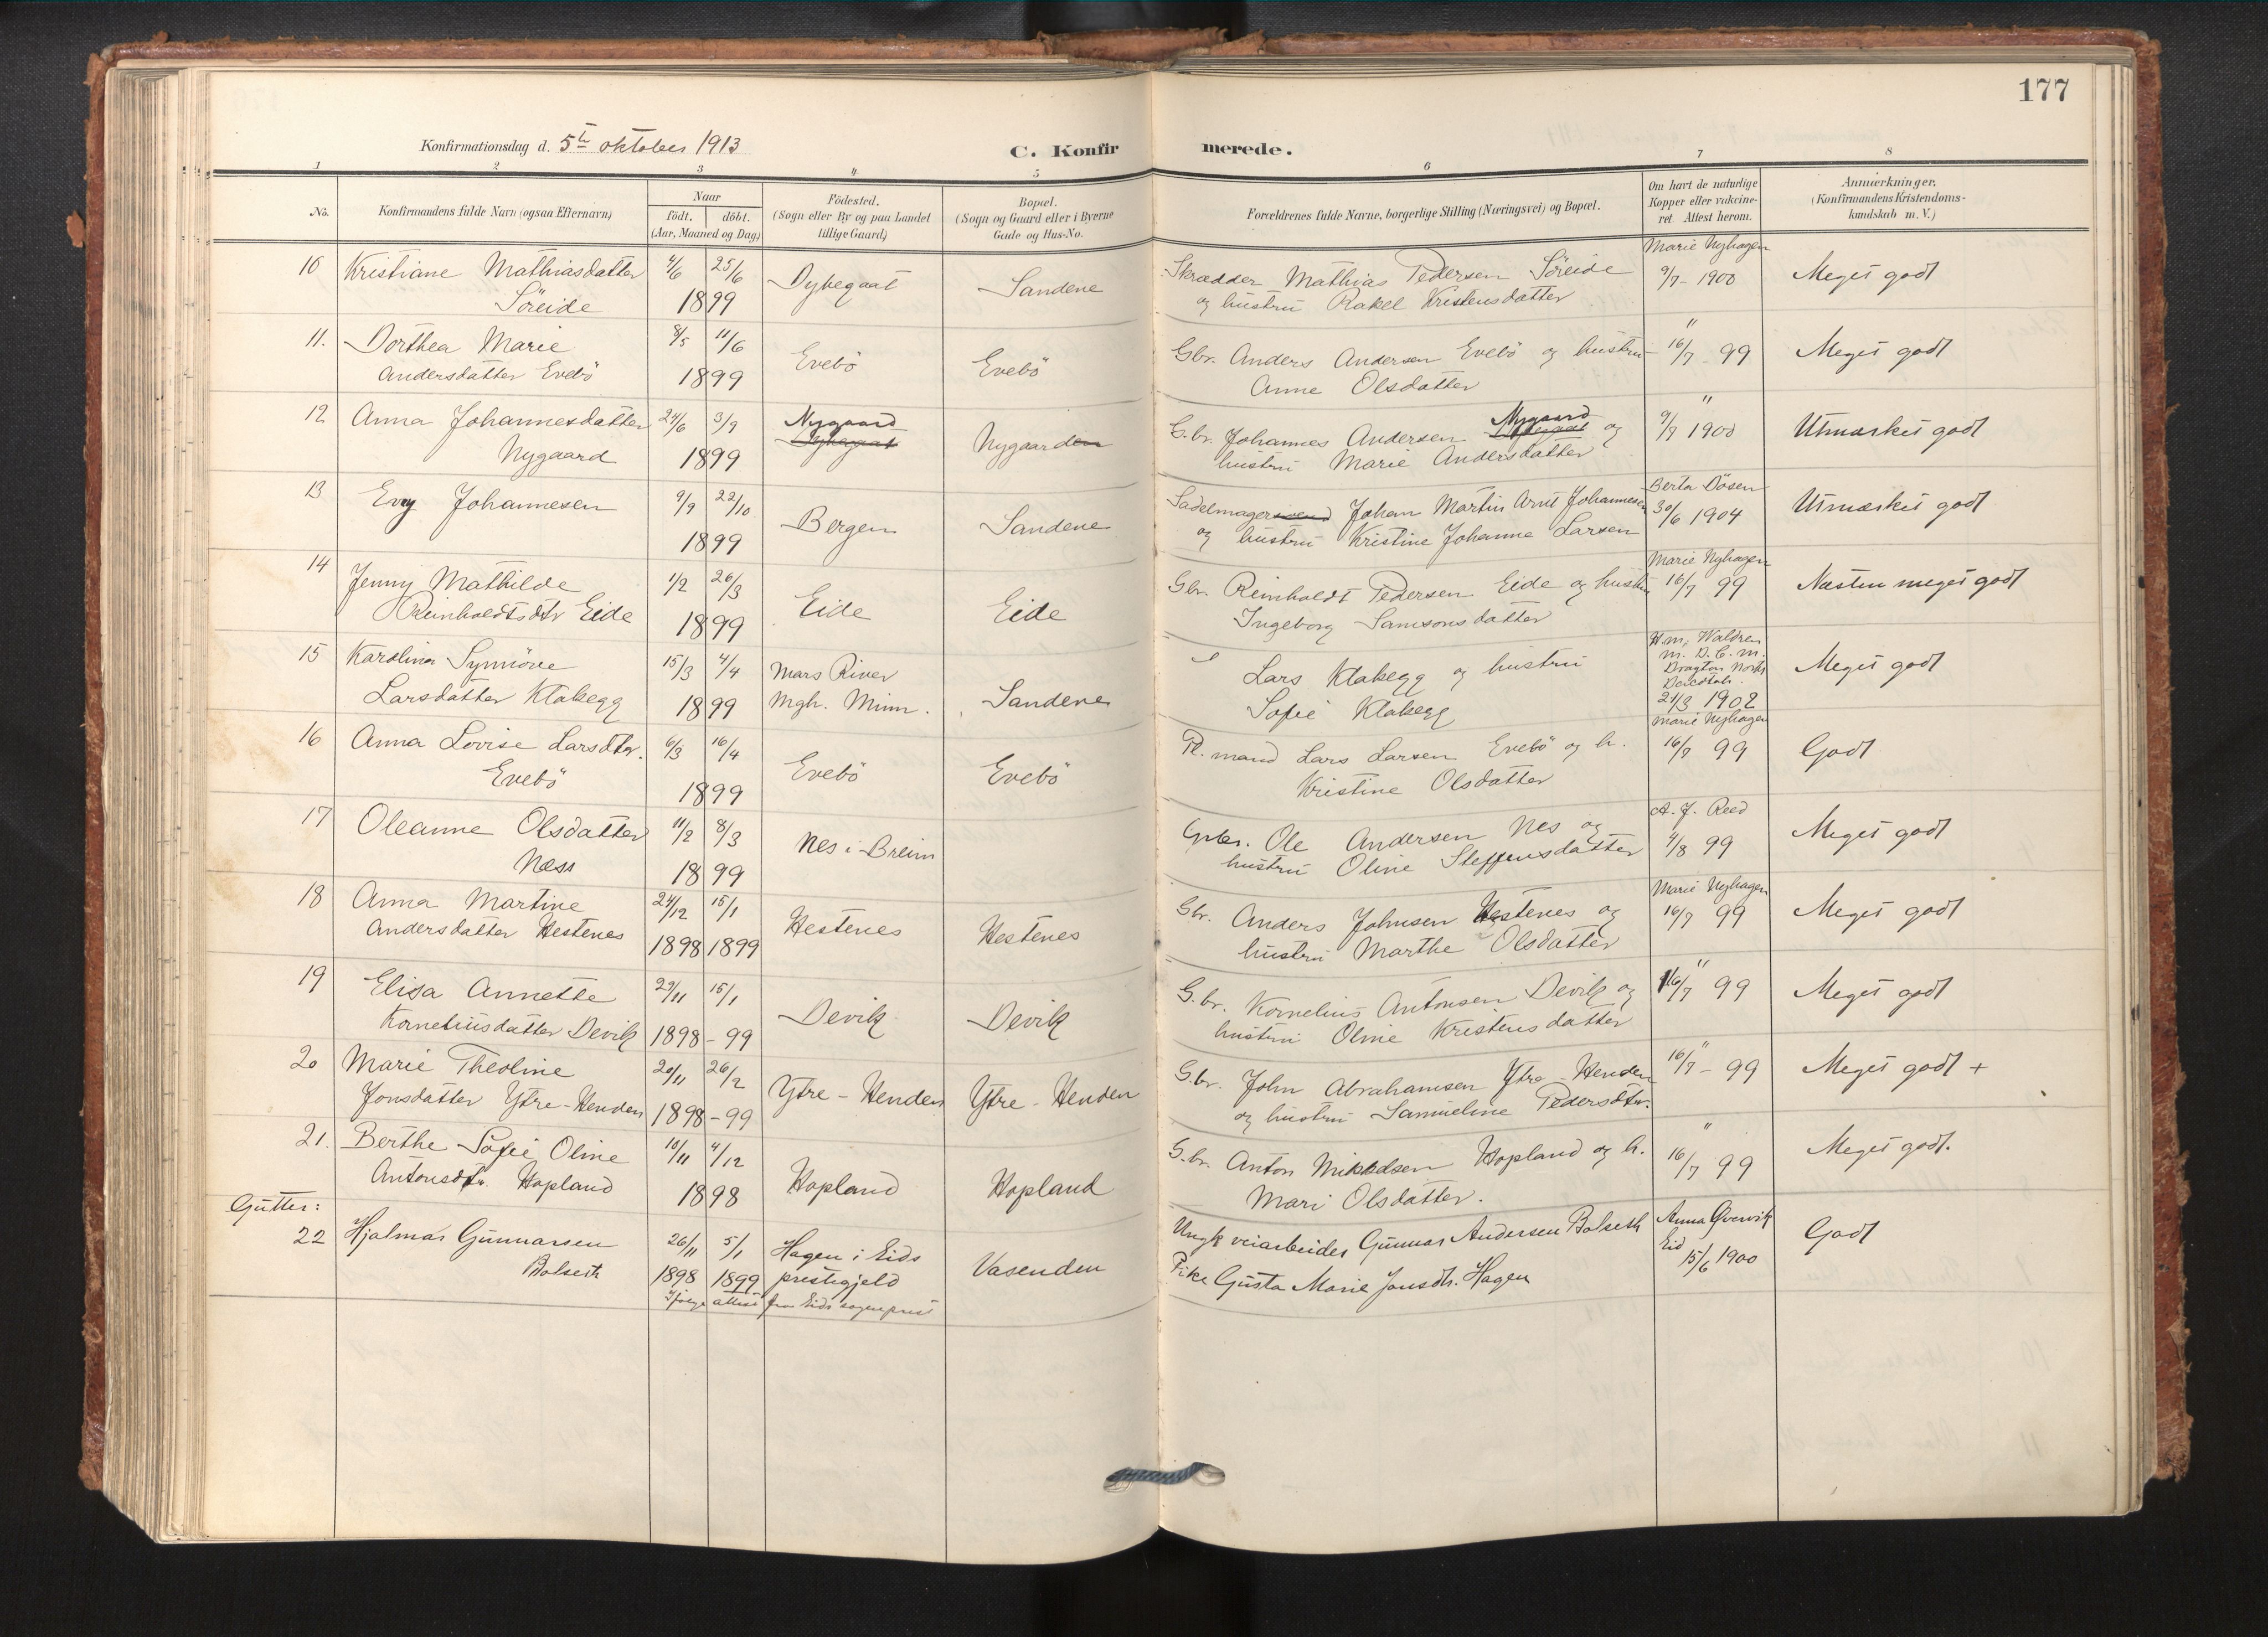 177
Konfirmationsdag d. 5te oktober 1913
C. Konfirmerede.
1 2 3 4 5 6 7 8
No.
Konfirmandens fulde Navn (ogsaa Efternavn)
Naar
födt. döbt.
(Aar, Maaned og Dag)
Födested.
(Sogn eller By og paa Landet
tillige Gaard)
Bopæl.
(Sogn og Gaard eller i Byerne
Gade og Hus-No.
Forældrenes fulde Navne, borgerlige Stilling (Næringsvei) og Bopæl.
Om havt de naturlige
Kopper eller vakcine-
ret. Attest herom.
Anmærkninger.
(Konfirmandens Kristendoms-
kundskab m. V.)
10 Kristiane Mathiasdatter 4/6 25/6 Dybegaat Sandene Skrædder Mathias Pedersen Söreide Marie Nyhagen Meget godt
Söreide 1899 og hustru Rakel Kristensdatter 9/7 - 1900
11. Dorthea Marie 8/5 11/6 Evebö Evebö Gbr. Anders Andersen Evebö og hustru " Meget godt
Andersdatter Evebö 1899 Anne Olsdatter 16/7 99
12 Anna Johannesdatter 24/6 3/9 Nygaard Nygaarden G.br. Johannes Andersen Nygaard og " Utmærket godt
Nygaard 1899 Dybegaat hustru Marie Andersdatter 9/7 1900
13 Evy Johannesen 9/9 22/10 Bergen Sandene Sadelmagersvend Johan Martin Arnt Johannesen Berta Dösen Utmærket godt
1899 og hustru Kristine Johanne Larsen 30/6 1904
14 Jenny Mathilde 1/2 26/3 Eide Eide Gbr. Reinholdt Pedersen Eide og hustru Marie Nyhagen Næsten meget godt
Reinholdtsdtr Eide 1899 Ingeborg Samsonsdatter 16/7 99
15 Karolina Synnöve 15/3 4/4 Mars River Sandene Lars Klakegg og hustru H.m. Waldren Meget godt
Larsdatter Klakegg 1899 Mgh. Minn. Sofie Klakegg m. D. C. m.
Drayton North
21/3 1902
16 Anna Lovise Larsdtr. 6/3 16/4 Evebö Evebö Pl. mand Lars Larsen Evebö og h. Marie Nyhagen Godt
Evebö 1899 Kristine Olsdatter 16/7 99
17 Oleanne Olsdatter 11/2 8/3 Nes i Breim Gbr. Ole Andersen Nes og A. J. Reed Meget godt
Næss 1899 hustru Oline Steffensdatter 4/8 99
18 Anna Martine 24/12 15/1 Hestenes Hestenes Gbr. Anders Johnsen Hestenes og Marie Nyhagen Meget godt
Andersdatter Hestenes 1898 1899 hustru Marthe Olsdatter 16/7 99
19 Elisa Annette 29/11 15/1 Devik Devik G.br. Kornelius Antonsen Devik og " Meget godt
Korneliusdatter Devik 1898 - 99 hustru Oline Kristensdatter 16/7 99
20 Marie Theoline 20/11 26/2 Ytre - Henden Ytre - Henden G.br. John Abrahamsen Ytre - Henden " Meget godt +
Jonsdatter Ytre - Henden 1898 - 99 og hustru Samueline Pedersdtr. 16/7 - 99
21. Berthe Sofie Oline 10/11 4/12 Hopland Hopland G.br. Anton Mikkelsen Hopland og h. " Meget godt.
Antonsdtr. Hopland 1898 Mari Olsdatter. 16/7 99
Gutter:
22 Hjalmar Gunnarsen 26/11 5/1 Hagen i Eids Vasenden Ungk veiarbeider Gunnar Andersen Bolseth Anna Qvervik Godt
Bolseth 1898 1899 prestegjeld Pike Gusta Marie Jonsdtr. Hagen Eid 15/6 1900
Ifølge attest fra Eids sogneprest